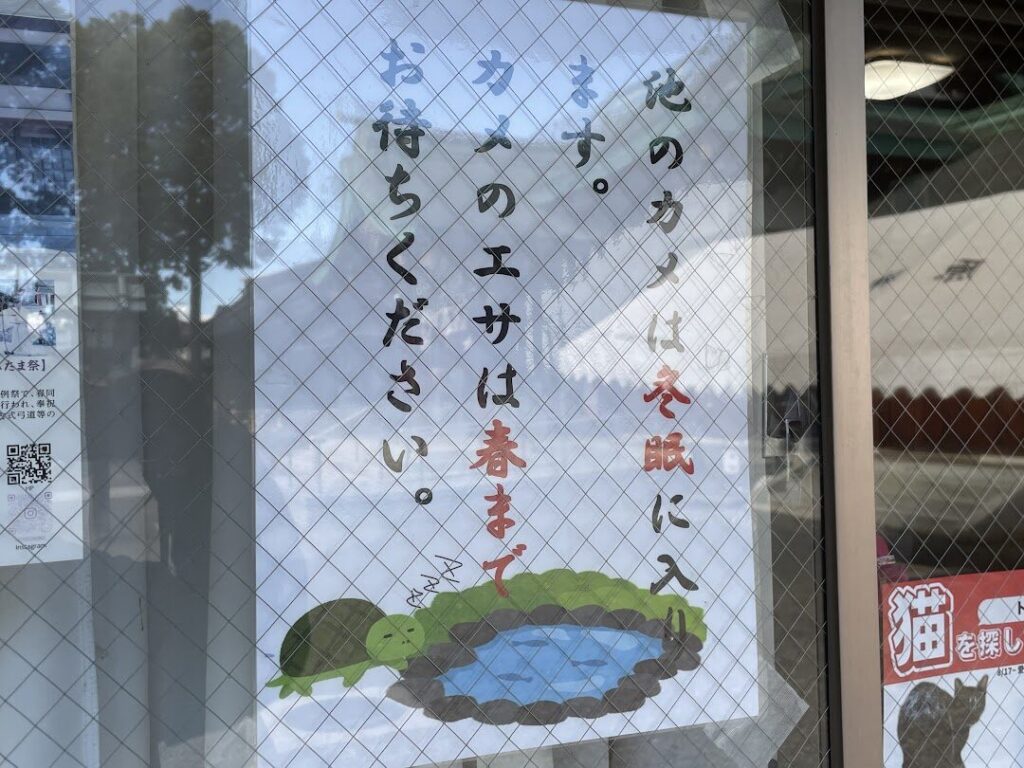 池のカメは冬眠に入り
ます。
カメのエサは春まで
お待ちください。
zzz
たま祭】
例祭で、春同
行われ、奉祝
古式弓道等の
Instagram
猫
を探し
8/17~